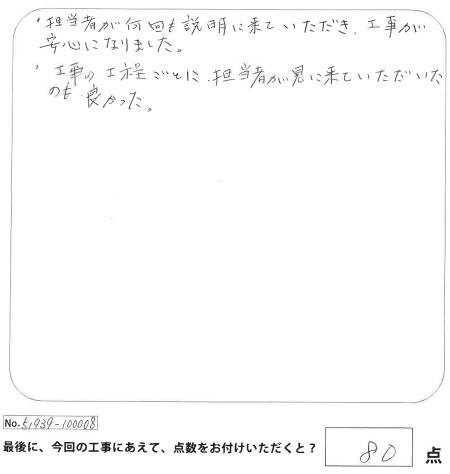 ・担当者が何回も説明に来ていただき、工事が
安心になりました。
・工事の工程ごとに、担当者が見に来ていただいた
のも良かった。
No. 51939-100008
最後に、今回の工事にあえて、点数をお付けいただくと？ 80 点